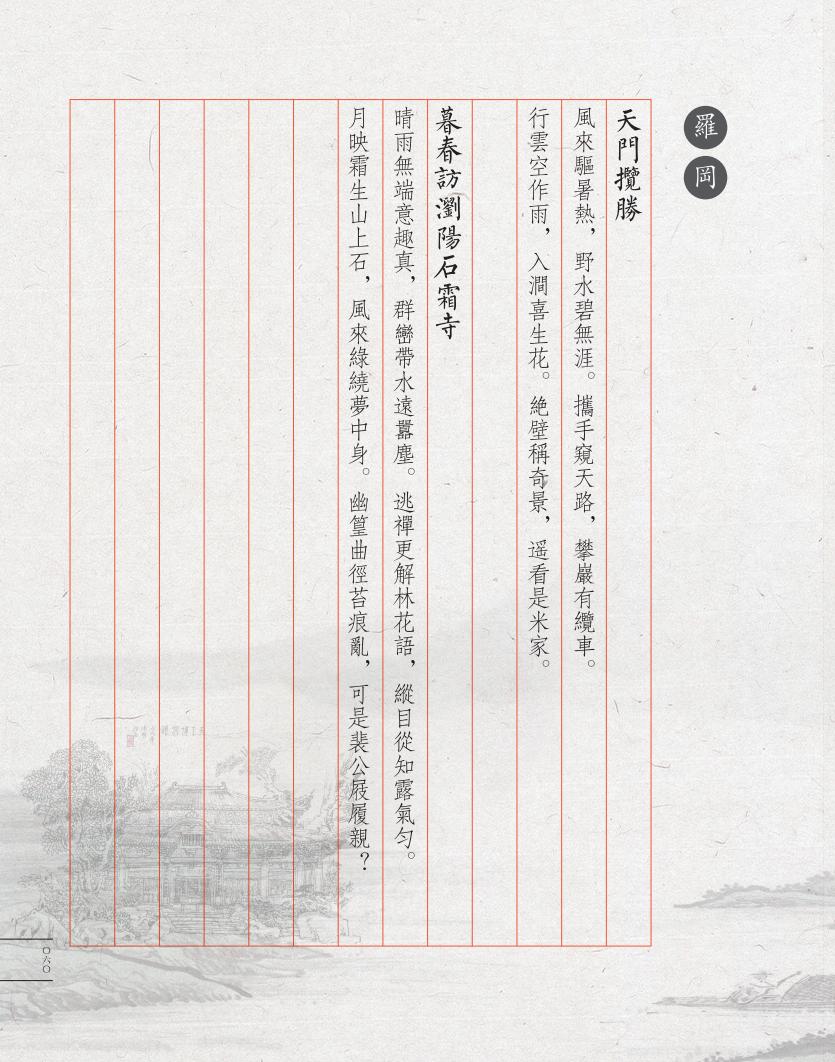 羅岡
天門攬勝
風來驅暑熱，野水碧無涯。攜手窺天路，攀巖有纜車。
行雲空作雨，入澗喜生花。絶壁稱奇景，遥看是米家。
暮春訪瀏陽石霜寺
晴雨無端意趣真，群巒帶水遠囂塵。逃禪更解林花語，縱目從知露氣勻。
月映霜生山上石，風來綠繞夢中身。幽篁曲徑苔痕亂，可是裴公屐履親？
〇六〇